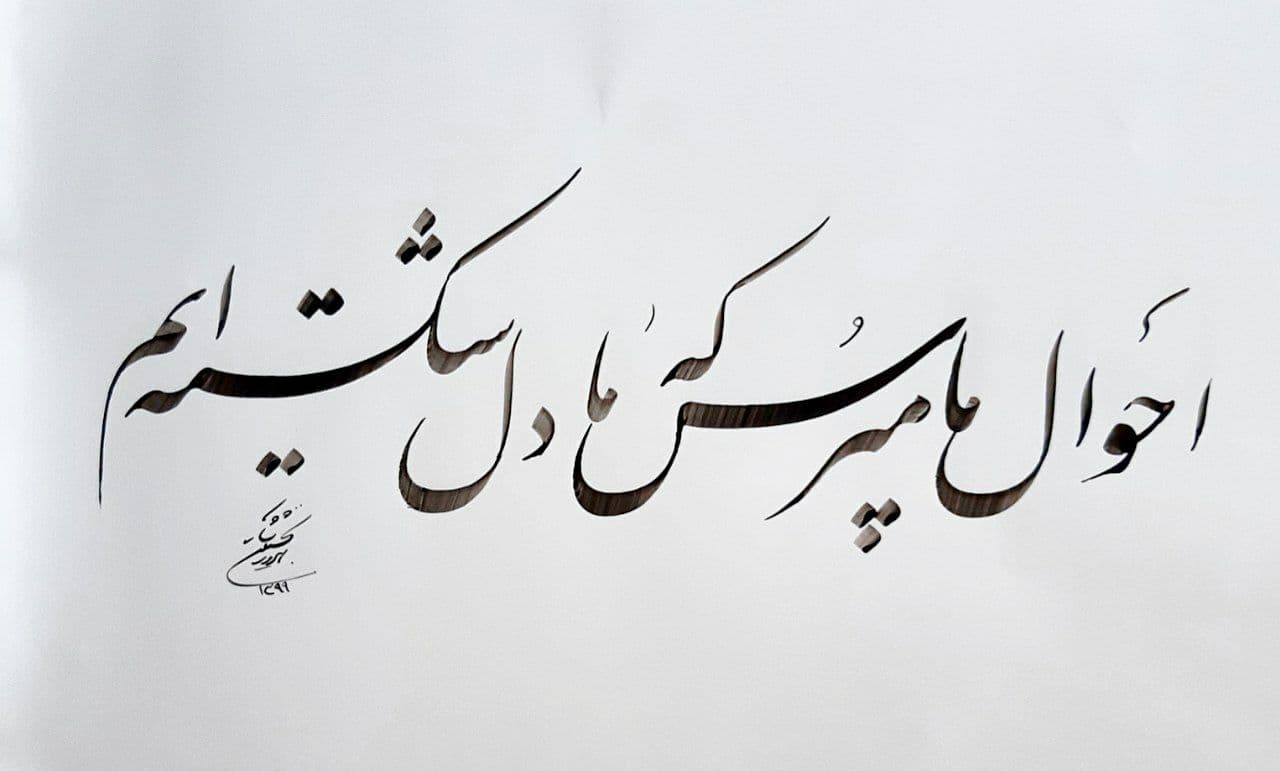 احوال ما مپرس که ما دل شکسته ایم
۱۳۹۹